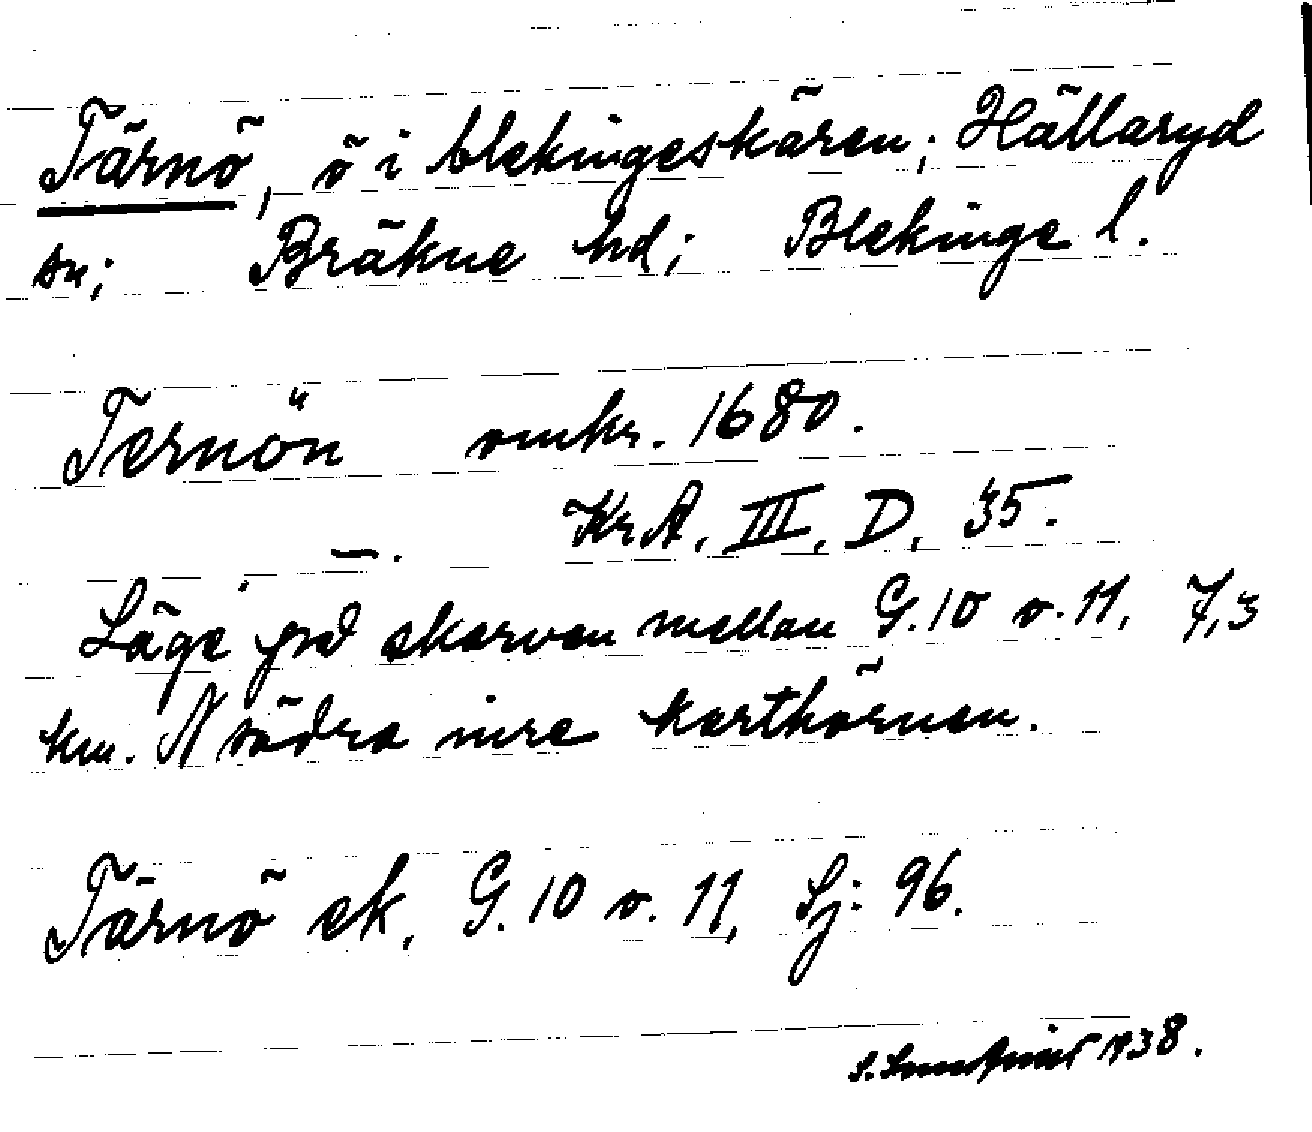 Tärnö, ö i blekingeskären; Hällaryd
sn; Bräkne hd; Blekinge l.
Ternön omkr. 1680.
—. KrA, III, D, 35.
Läge på skarven mellan G.10 o. 11, 7,3
km. N södra inre karthörnen.
Tärnö ek, G. 10 o. 11, Sj: 96.
S. 1938.